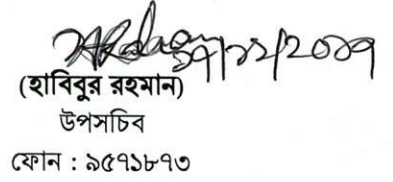 ১৭/১২/২০১৭
(হাবিবুর রহমান)
উপসচিব
ফোন : ৯৫৭১৮৭৩